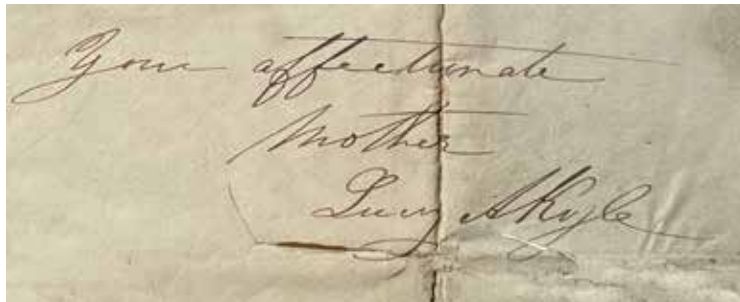 Your affectionate
Mother
Lucy A Kyle